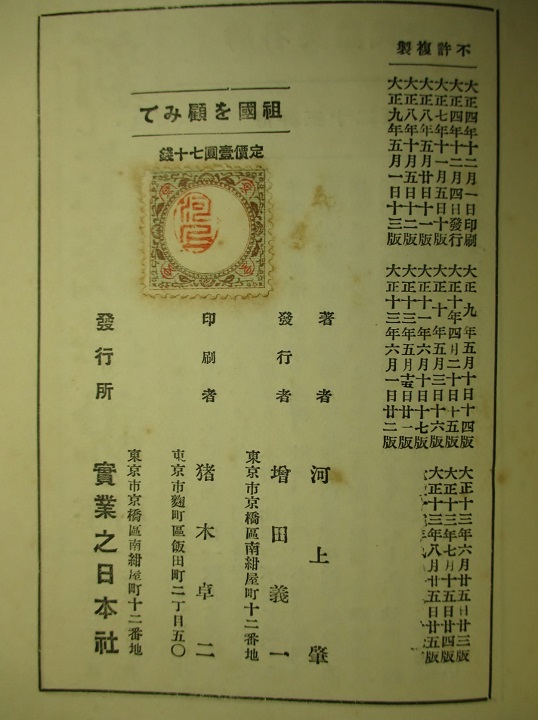 不許複製
大正四年十二月一日印刷
大正四年十二月四日發行
大正七年十一月五日十版
大正八年五月廿日十一版
大正八年十月五日十二版
大正九年五月一日十三版
大正九年五月十日十四版
大正十年四月二十日十五版
大正十年五月三日十六版
大正十一年六月十日十七版
大正十三年五月十五日廿一版
大正十三年六月一日廿二版
大正十三年六月廿五日廿三版
大正十三年七月十五日廿四版
大正十三年八月廿五日廿五版
祖國を顧みて
定價壹圓七十錢
著者 河上肇
發行者 增田義一
東京市京橋區南紺屋町十二番地
印刷者 猪木卓二
東京市麴町區飯田町二丁目五〇
發行所 實業之日本社
東京市京橋區南紺屋町十二番地